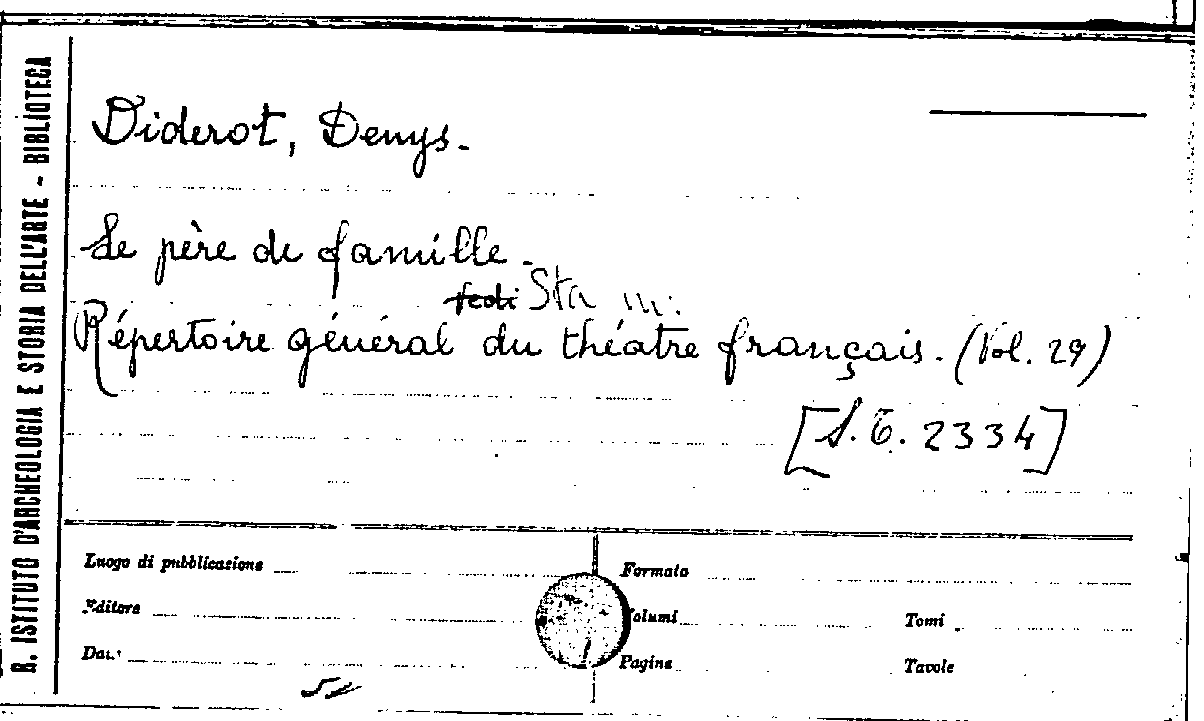 R. ISTITUTO D'ARCHEOLOGIA E STORIA DELL'ARTE - BIBLIOTECA
Diderot, Denys.
Le père de famille.
Répertoire général du théatre français. (Vol. 29)
[S. T. 2334]
Luogo di pubblicazione
Formato
Editore
Volumi
Tomi
Data
Pagine
Tavole